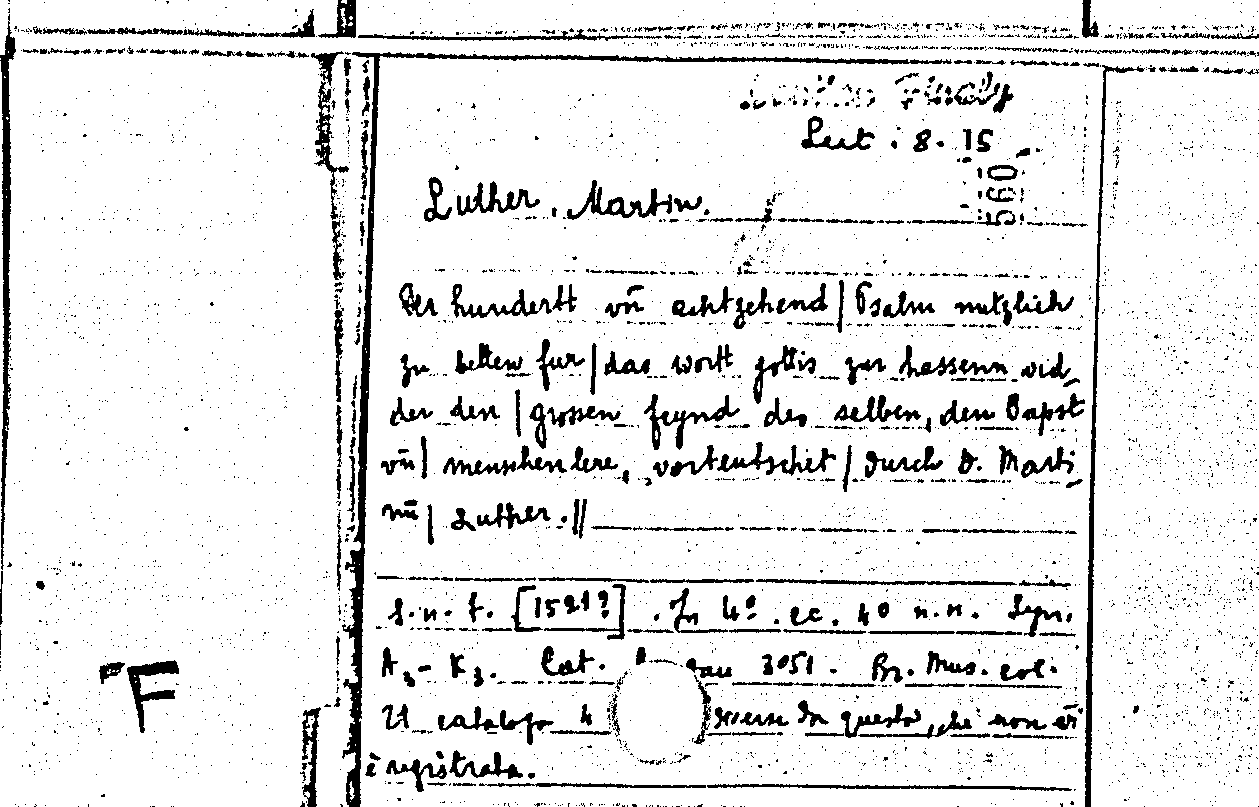 Landau Finaly
Lut : 8. 15
560
Luther, Martin.
Der hundertt vn̄ achtzehend | Psalm nutzlich
zu betten fur | das wortt gottis zur hassenn wid,
der den | grossen feynd des selben, den Bapst
vn̄ | menschenlere, vorteutschet | durch D. Marti,
nū | Luther. ||
S. n. t. [1521?] . In 4º . cc. 40 n.n. Segn.
A3 - K3. Cat. 3051. Br. Mus. col.
21 catalogo 4 da questa, che non vi
è registrata.
F